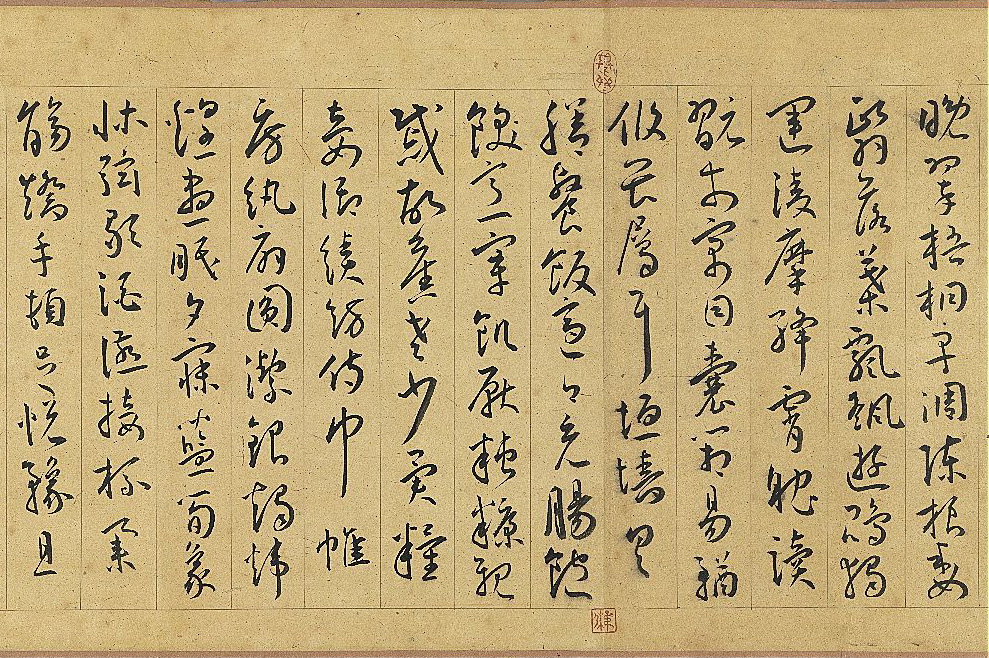 晚翠梧桐早凋陳根委
翳落葉飄颻遊鵾獨
運凌摩絳霄耽讀
翫市寓目囊箱易輶
攸畏屬耳垣牆具
膳飡飯適口充腸飽
飫烹宰飢厭糟糠親
戚故舊老少異糧
妾御績紡侍巾帷
房紈扇圓潔銀燭煒
煌晝眠夕寐藍筍象
床弦歌酒讌接杯舉
觴矯手頓足悅豫且